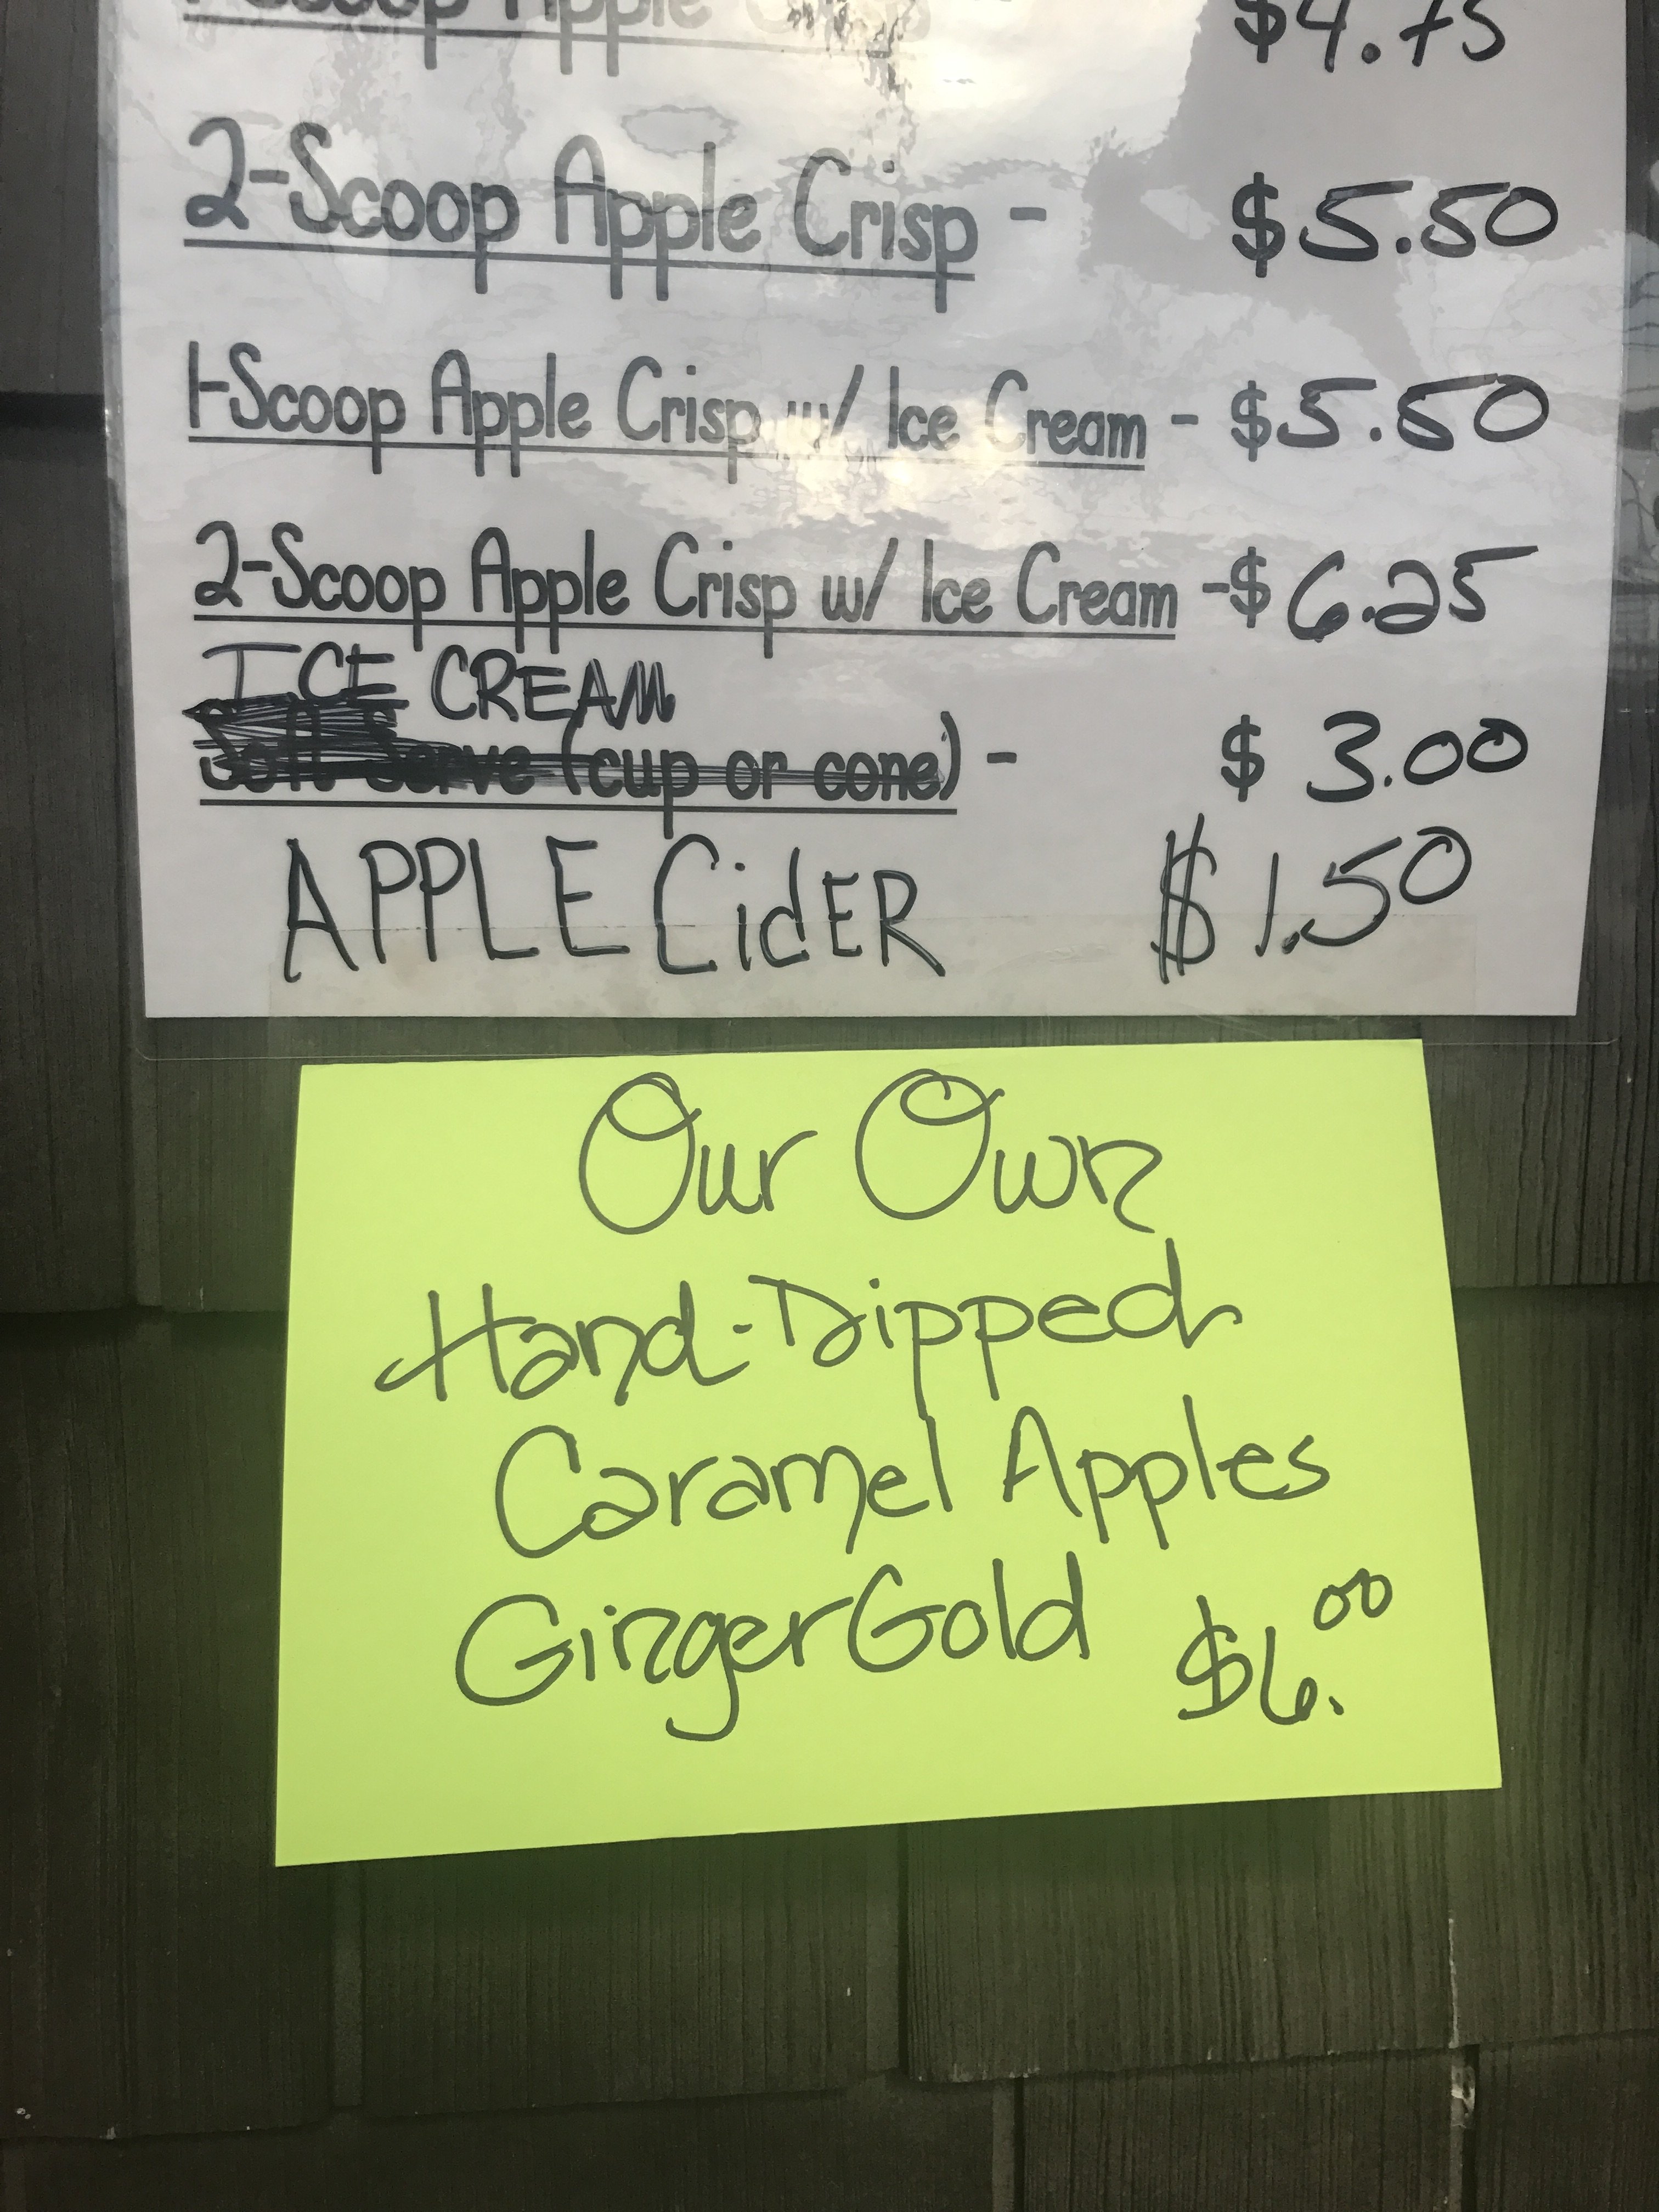 1-Scoop Apple Crisp - $4.75
2-Scoop Apple Crisp - $5.50
1-Scoop Apple Crisp w/ Ice Cream - $5.50
2-Scoop Apple Crisp w/ Ice Cream - $6.25
ICE CREAM
Soft Serve (cup or cone) - $3.00
APPLE CidER $1.50
Our Own
Hand-Dipped
Caramel Apples
GingerGold $6.00